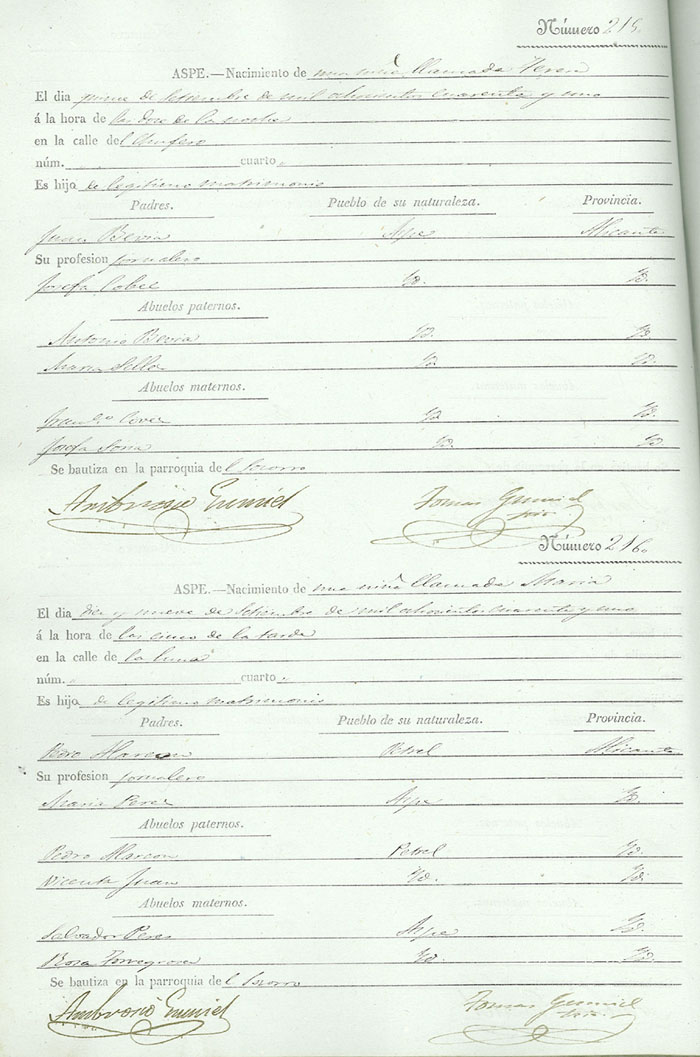 Número 215.
ASPE.—Nacimiento de una niña llamada Teresa
El dia quince de Setiembre de mil ochocientos cuarenta y uno
á la hora de las doce de la noche
en la calle del
núm. cuarto
Es hijo de legitimo matrimonio
Padres. Pueblo de su naturaleza. Provincia.
Juan Bevia Aspe Alicante
Su profesion jornalero
Josefa Id. Id.
Abuelos paternos.
Antonio Bevia Id. Id.
Maria Id. Id.
Abuelos maternos.
Id. Id.
Josefa Soria Id. Id.
Se bautiza en la parroquia del Socorro
Ambrosio Gumiel Tomas Gumiel
Número 216.
ASPE.—Nacimiento de una niña llamada Maria
El dia diez y nueve de Setiembre de mil ochocientos cuarenta y uno
á la hora de las cinco de la tarde
en la calle de la luna
núm. cuarto
Es hijo de legitimo matrimonio
Padres. Pueblo de su naturaleza. Provincia.
Pedro Alarcon Petrel Alicante
Su profesion jornalero
Maria Perez Aspe Id.
Abuelos paternos.
Pedro Alarcon Petrel Id.
Vicenta Juan Id. Id.
Abuelos maternos.
Salvador Perez Aspe Id.
Rosa Torregrosa Id. Id.
Se bautiza en la parroquia del Socorro
Ambrosio Gumiel Tomas Gumiel